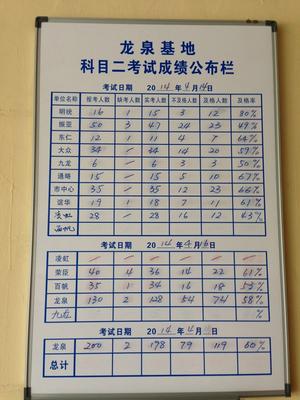 龙泉基地
科目二考试成绩公布栏
考试日期 2014年4月14日
单位名称 报考人数 缺考人数 实考人数 不及格人数 及格人数 及格率
明统 16 1 15 3 12 80%
振亚 50 3 47 24 23 49%
东仁 12 1 11 4 64%
大众 34 — 34 14 20 59%
九龙 6 — 6 3 3 50%
通略 15 — 15 5 10 67%
市中心 35 — 35 12 23 66%
谊华 19 1 18 7 11 61%
凌虹 28 — 28 16 12 43%
西帆
考试日期 2014年4月16日
凌虹 — — — — — —
荣臣 40 4 36 14 22 61%
百帆 35 1 34 16 18 53%
龙泉 130 2 128 54 74 58%
九龙
考试日期 2014年4月 日
龙泉 200 2 198 79 119 60%
总计